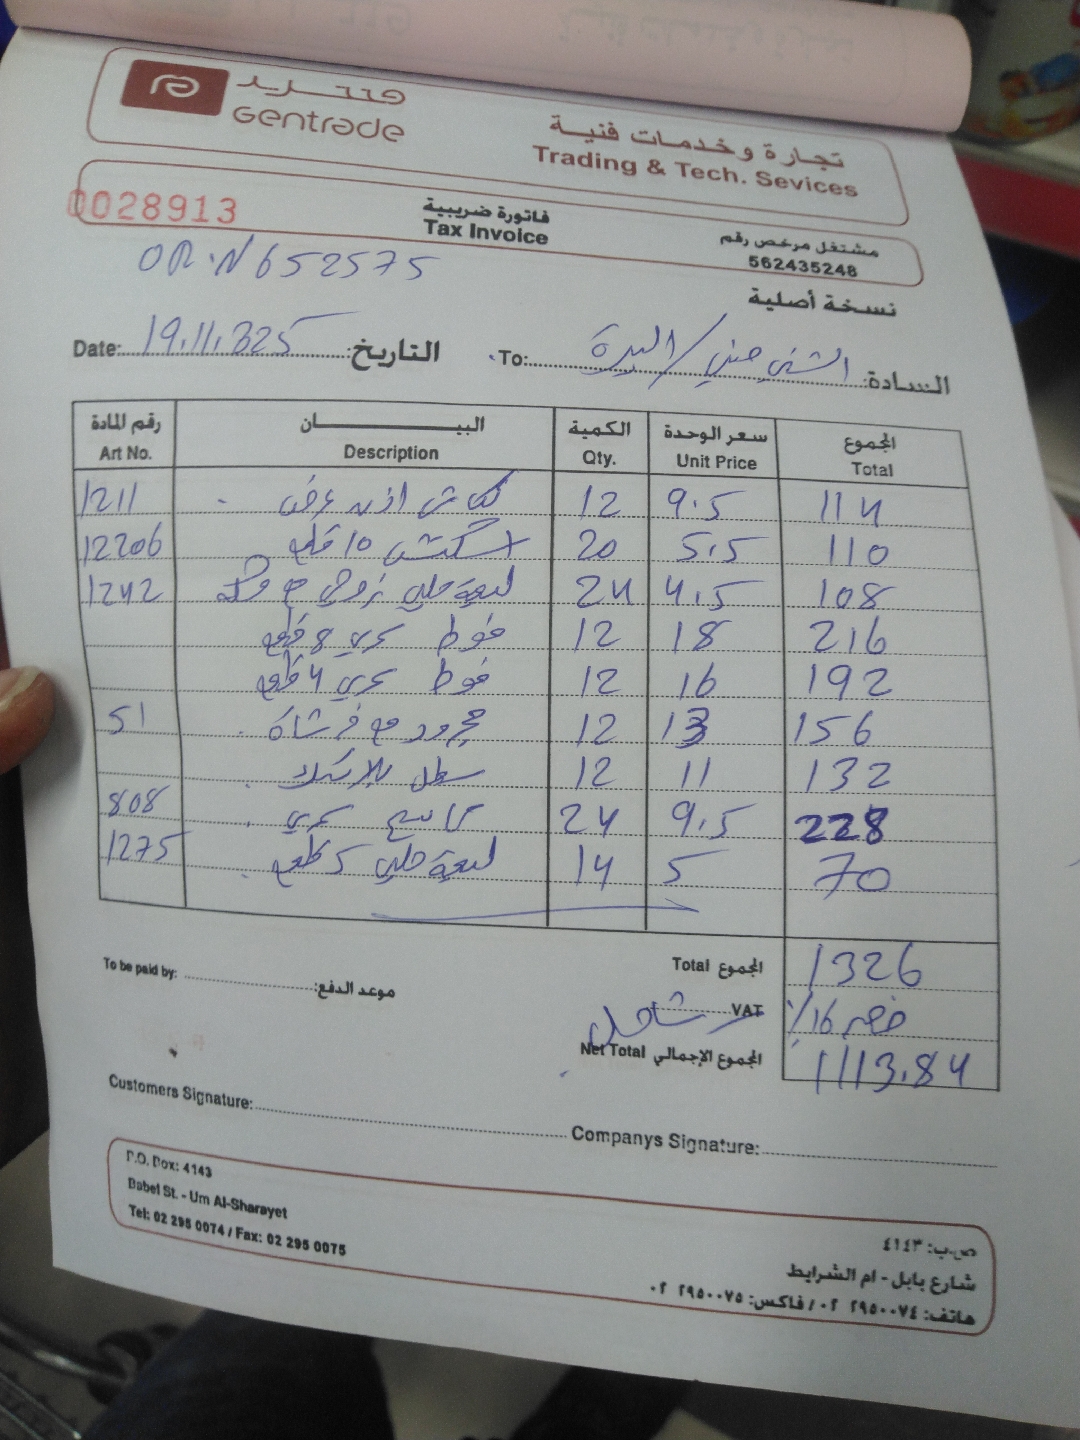 جنتريد
Gentrade
تجارة وخدمات فنية
Trading & Tech. Sevices
0028913
فاتورة ضريبية
Tax Invoice
مشتغل مرخص رقم
562435248
OR.N 652575
نسخة أصلية
Date: 19.11.325 التاريخ:
To: الشني جنني / البيرة السادة:
رقم المادة البيــــان الكمية سعر الوحدة المجموع
Art No. Description Qty. Unit Price Total
1211 12 9.5 114
12206 10 قطع 20 5.5 110
1242 ليفة جلي 24 4.5 108
فوط سحري 8 قطع 12 18 216
فوط سحري 4 قطع 12 16 192
51 مجرود مع فرشاة 12 13 156
سطل 12 11 132
808 سحري 24 9.5 228
1275 ليفة جلي 5 قطع 14 5 70
Total المجموع 1326
VAT خصم 16%
Net Total المجموع الإجمالي 1113.84
To be paid by: موعد الدفع:
Customers Signature: Companys Signature:
P.O. Box: 4143
Babel St. - Um Al-Sharayet
Tel: 02 295 0074 / Fax: 02 295 0075
ص.ب: ٤١٤٣
شارع بابل - ام الشرايط
هاتف: ٢٩٥٠٠٧٤ ٠٢ / فاكس: ٢٩٥٠٠٧٥ ٠٢